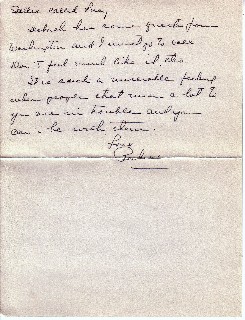 called
which has some guests from
Washington and I must go to see
them. I feel much like it tho
It is such a miserable feeling
when people that mean a lot to
you are in trouble and you
can be with them.
Love